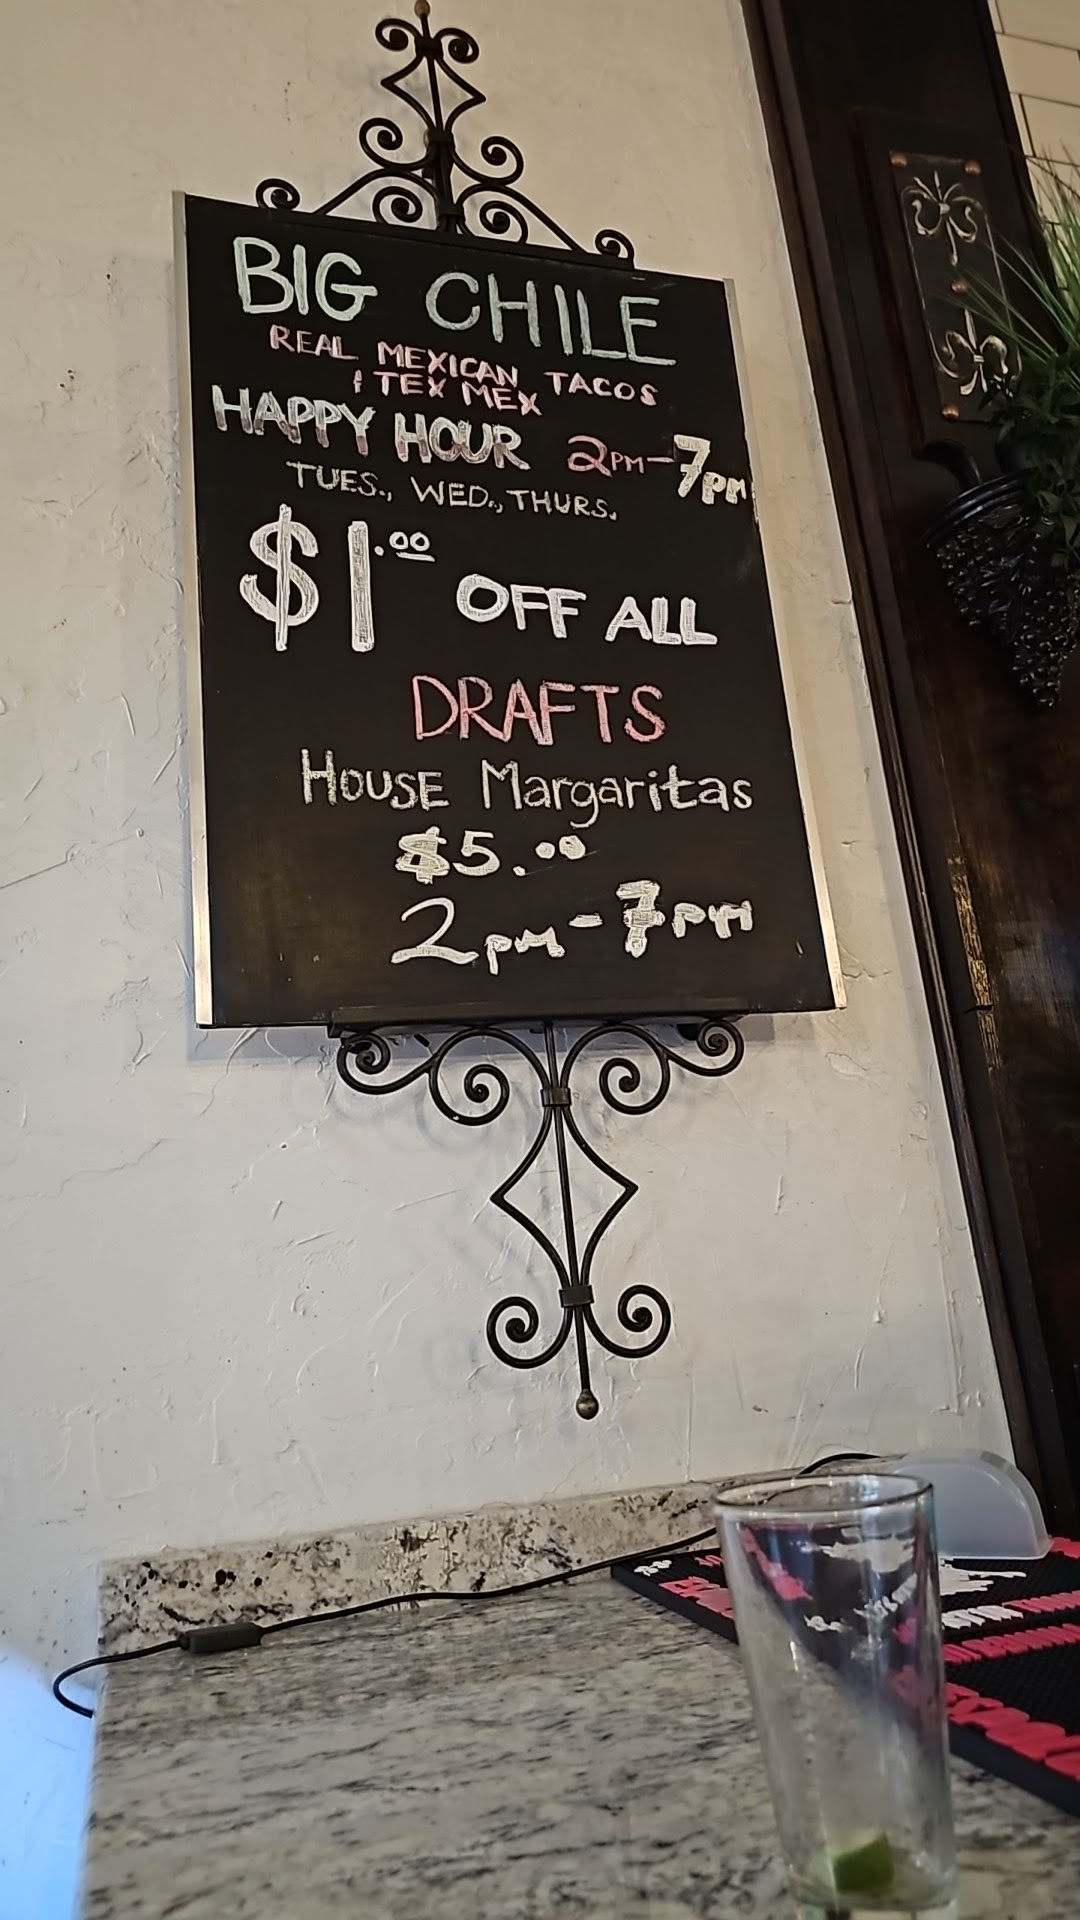 BIG CHILE
REAL MEXICAN TACOS
& TEX MEX
HAPPY HOUR 2PM-7pm
TUES., WED., THURS.
$1.00 OFF ALL
DRAFTS
HOUSE Margaritas
$5.00
2pm-7pm